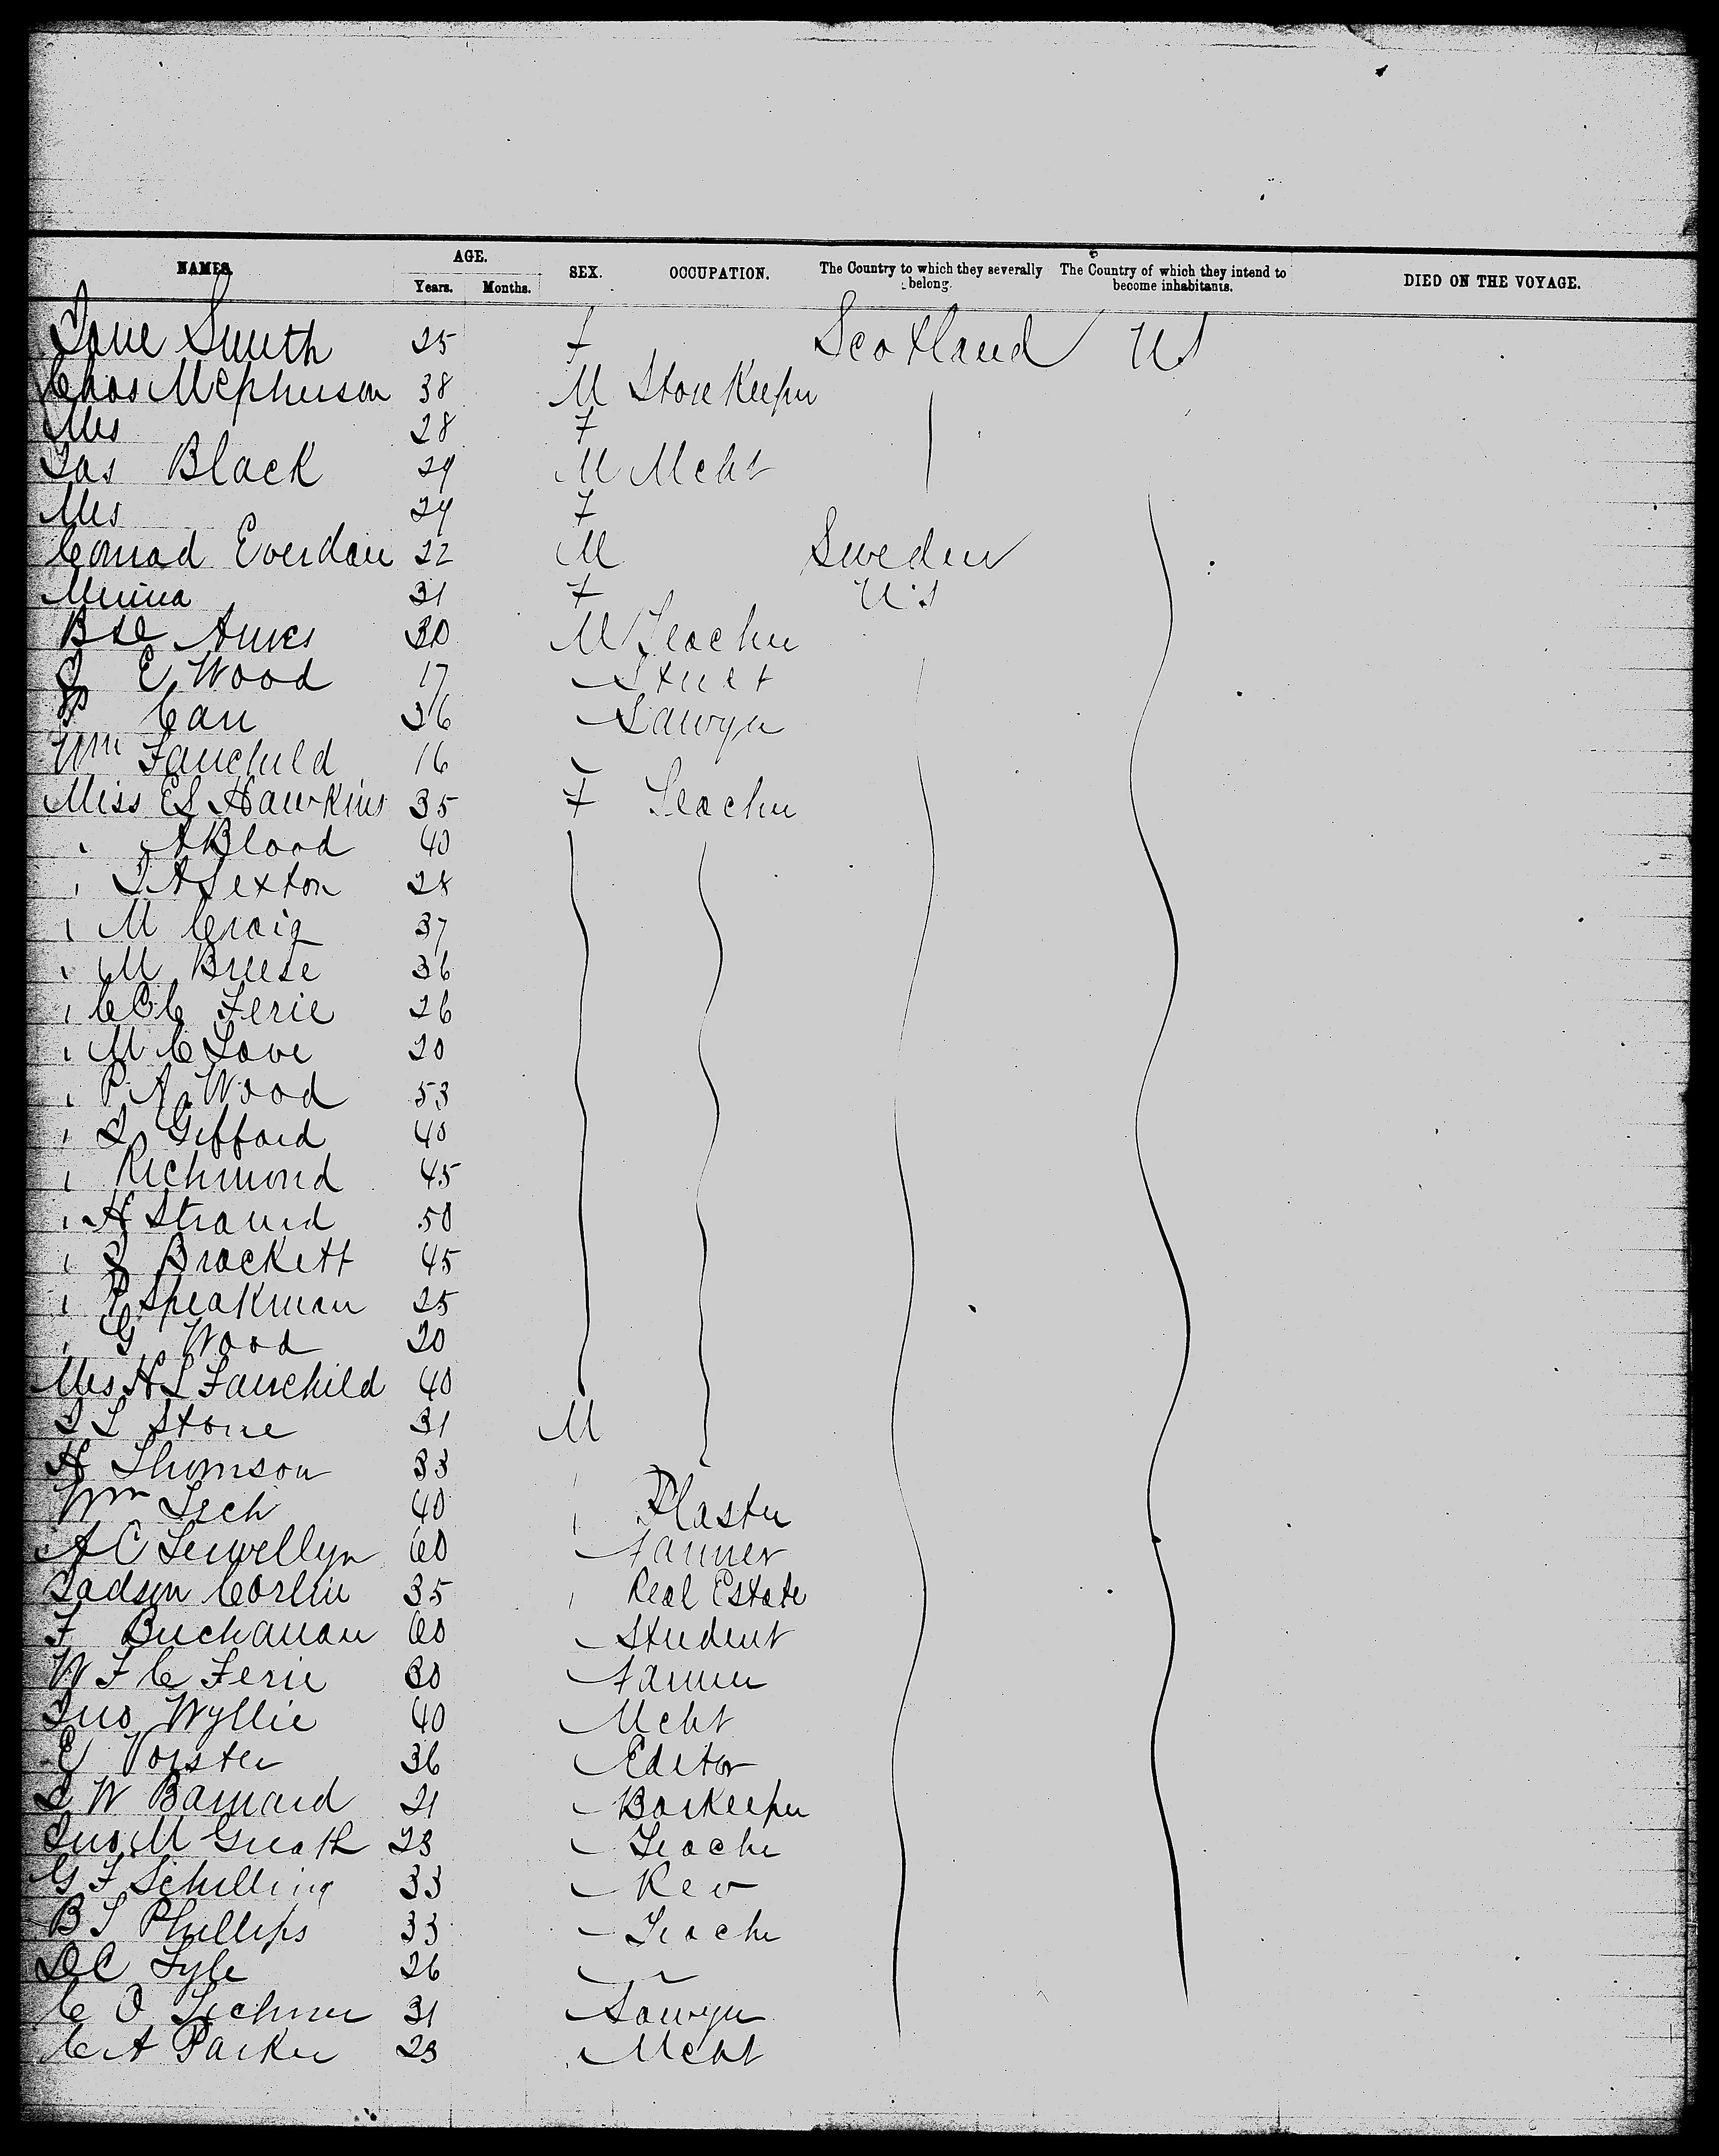 NAMES. AGE. SEX. OCCUPATION. The Country to which they severally belong. The Country of which they intend to become inhabitants. DIED ON THE VOYAGE.
Years. Months.
Jane Smith 25 F Scotland US
Chas McPherson 38 M Store Keeper
Mrs 28 F
Jas Black 29 M Mcht
Mrs 24 F
Conrad Everdan 22 M Sweden
Minna 31 F U.S
Ames 30 M Teacher
E Wood 17
Carr 36 Lawyer
Wm Fairchild 16
Miss E L Hawkins 35 F Teacher
" A Blood 40
" J A Sexton 28
" M Craig 37
" M Breese 36
" C B C Ferie 26
" M C Love 20
" P A Wood 53
" L Gifford 40
" Richmond 45
" H Strand 50
" J Brackett 45
" R Speakman 25
" G Wood 20
Mrs H L Fairchild 40
J L Stone 31 M
H Thomson 33
Wm Lech 40 Plaster
A C Lewellyn 60 Farmer
Judson Corlin 35 Real Estate
F Buchanan 60 Student
W F C Ferie 30 Farmer
Jno Wyllie 40 Mcht
E Vorster 36 Editor
J W Barnard 21 Barkeeper
Jno M Greath 23 Teacher
G F Schilling 33 Rev
B S Phillips 33 Teacher
D C Lyle 26
C O Lechner 31 Lawyer
C A Parker 23 Mcht